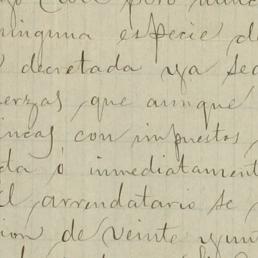 pero nunca
ninguna especie de
decretada ya sea
uerzas, que aunque
incas con impuestos
da ó inmediatament
El arrendatario se
ion de veinte y un